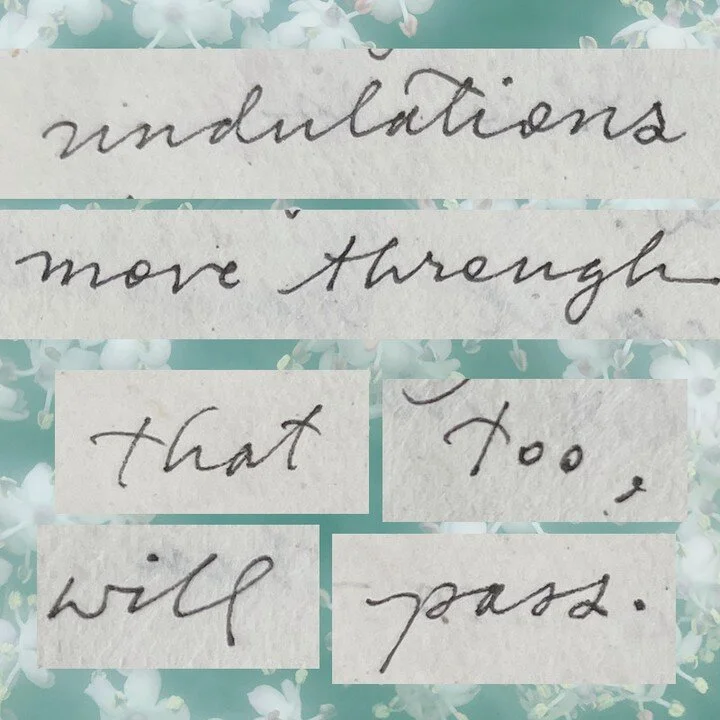 undulations
move through
that too,
will pass.